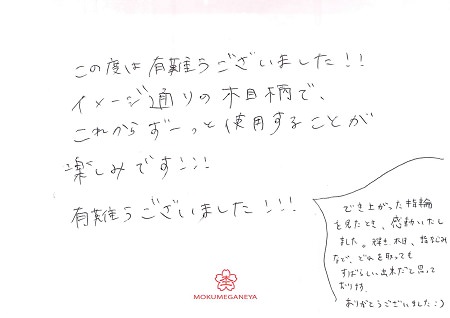 この度は有難うございました!!
イメージ通りの木目柄で、
これからずーっと使用することが
楽しみです!!!
有難うございました!!!
でき上がった指輪
を見たとき、感動いたし
ました。輝き、木目、指なじみ
など、どれを取っても
すばらしい出来だと思って
おります。
ありがとうございました:)
MOKUMEGANEYA